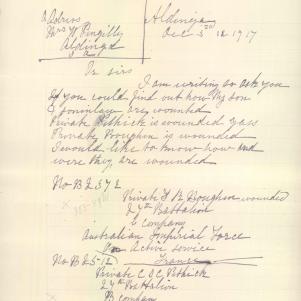 Address
Mrs W Pengilly
Aldinga
Aldinga
Dec 5 12 1917
Dr sirs
I am writing to ask you
if you could find out how My son
is wounded
Private Pethick is wounded gass
Private Boughen is wounded
I would like to know how and
were they are wounded
No B 2572
Private Boughen wounded
24th Battalion
C Company
Australian Imperial Force
Active service
No B 25-12 France
Private C S C Pethick
24th Battalion
B company